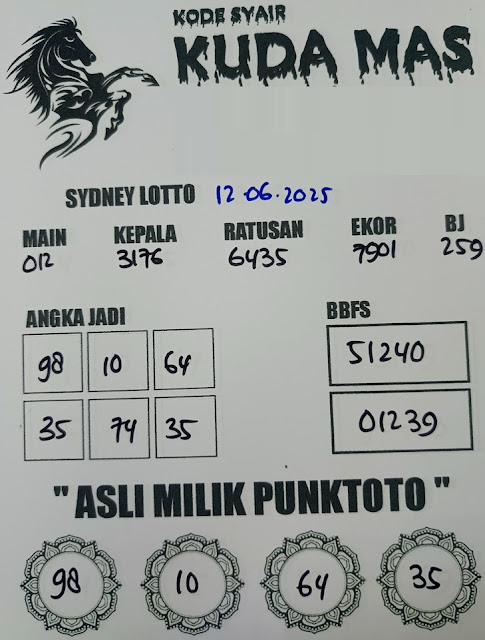 KODE SYAIR
KUDA MAS
SYDNEY LOTTO 12.06.2025
MAIN KEPALA RATUSAN EKOR BJ
012 3176 6435 7901 259
ANGKA JADI BBFS
98 10 64 51240
35 74 35 01239
" ASLI MILIK PUNKTOTO "
98 10 64 35